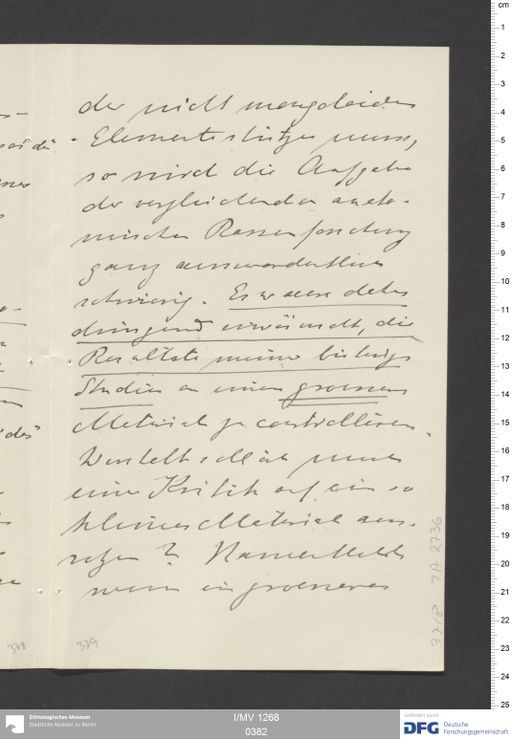 der nicht mongoloiden
Elemente stützen muss,
so wird die Aufgabe
der vergleichenden anato-
mischen Rassenforschung
ganz ausserordentlich
schwierig. Es waere daher
dringend erwünscht, die
Resultate meiner bisherigen
Studien an einem groesseren
Material zu controllieren.
Weshalb soll ich mich
einer Kritik auf ein so
kleines Material aus-
setzen? Namentlich
wenn ein groesseres
378
379
3718 7A 2736
cm
1
2
3
4
5
6
7
8
9
10
11
12
13
14
15
16
17
18
19
20
21
22
23
24
25
Ethnologisches Museum
Staatliche Museen zu Berlin
I/MV 1268
0382
Gefördert durch
DFG Deutsche
Forschungsgemeinschaft